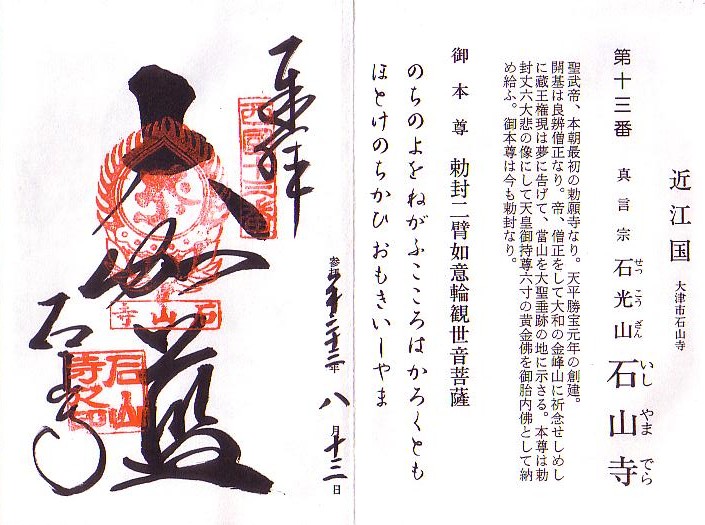 近江国 大津市石山寺
第十三番 真言宗 石光山 石山寺
せっ こう ざん いし やま でら
聖武帝、本朝最初の勅願寺なり。天平勝宝元年の創建。
開基は良辨僧正なり。帝、僧正をして大和の金峰山に祈念せしめし
に蔵王権現は夢に告げて、當山を大聖垂跡の地に示さる。本尊は勅
封丈六大悲の像にして天皇御持尊六寸の黄金佛を御胎内佛として納
め給ふ。御本尊は今も勅封なり。
御本尊 勅封二臂如意輪観世音菩薩
のちのよをねがふこころはかろくとも
ほとけのちかひおもきいしやま
奉拝
西国十三番
参拝 年 八月十三日
大伽藍
石山寺
石山寺
石山寺之印